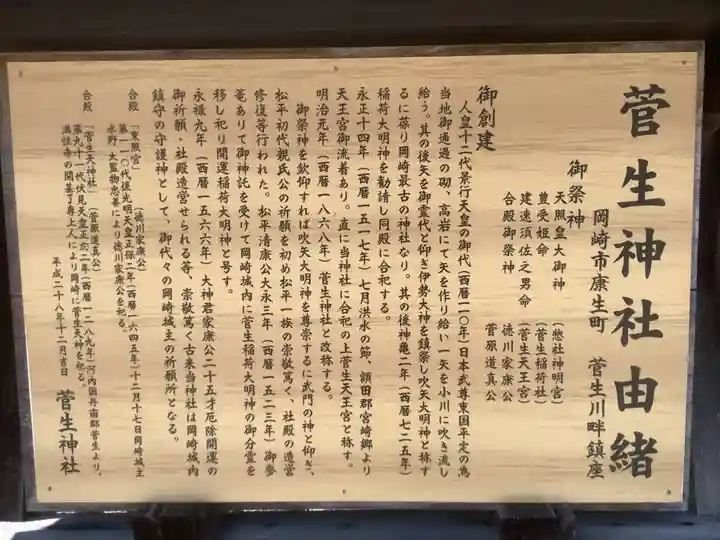 菅生神社由緒
岡崎市康生町 菅生川畔鎮座
御祭神
天照皇大御神 (惣社神明宮)
豊受姫命 (菅生稲荷社)
建速須佐之男命 (菅生天王宮)
合殿御祭神 徳川家康公
菅原道真公
御創建
人皇十二代景行天皇の御代(西暦一一〇年)日本武尊東国平定の為
当地御通過の砌、高岩にて矢を作り給い一矢を小川に吹き流し
給う。其の後矢を御霊代と仰ぎ伊勢大神を鎮祭し吹矢大明神と称す
るに𦾔り岡崎最古の神社なり。其の後神亀二年(西暦七二五年)
稲荷大明神を勧請し同殿に合祀する。
永正十四年(西暦一五一七年)七月洪水の節、額田郡宮崎郷より
天王宮御流着あり。直に当神社に合祀の上菅生天王宮と称す。
明治元年(西暦一八六八年)菅生神社と改称する。
御祭神を欽仰すれば吹矢大明神を尊崇するに武門の神と仰ぎ、
松平初代親氏公の祈願を初め松平一族の崇敬篤く、社殿の造営
修復等行われた。松平清康公大永三年(西暦一五二三年)御参
篭ありて御神託を受けて岡崎城内に菅生稲荷大明神の御分霊を
移し祀り開運稲荷大明神と号す。
永禄九年(西暦一五六六年)、大神君家康公二十五才厄除開運の
御祈願、社殿造営せられる等、崇敬篤く古来当神社は岡崎城内
鎮守の守護神として、御代々の岡崎城主の祈願所となる。
合殿 「東照宮」(徳川家康公)
第一一〇代後光明天皇正保二年(西暦一六四五年)十二月十七日岡崎城主
水野大監物忠善により徳川家康公を祀る。
合殿 「菅生天神社」(菅原道真公)
第九十一代伏見天皇正応二年(西暦一二八九年)河内国丹南郡菅生より、
満性寺の開基了専上人により岡崎に菅生天神を祀る。
平成二十八年十二月吉日 菅生神社